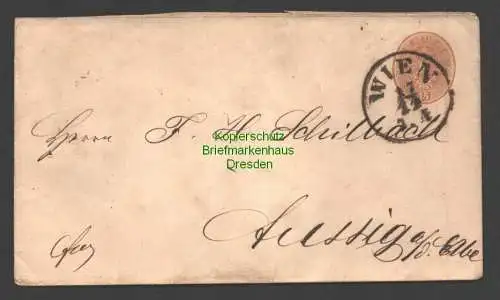 WIEN
17
12
Herrn F. W. Schilbach
Kopierschutz
Briefmarkenhaus
Dresden
Aussig a/d. Elbe